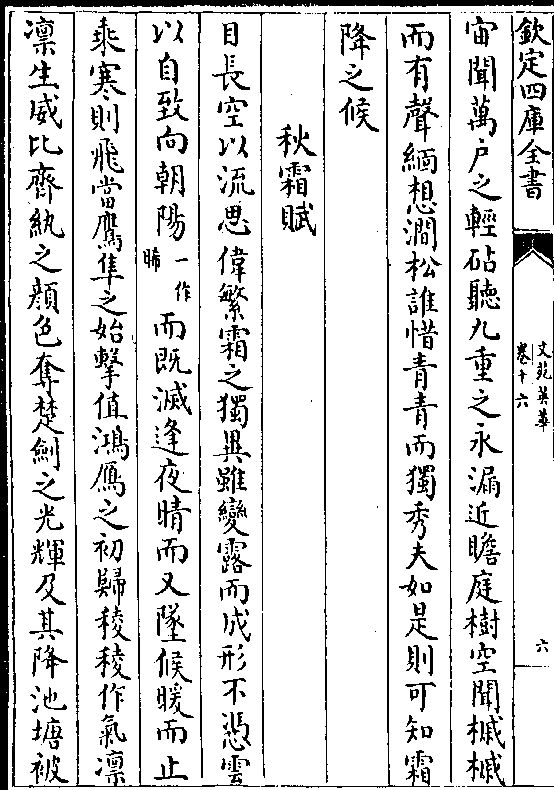 欽定四庫全書
文苑英華
卷十六
六
宙聞萬户之輕砧聽九重之永漏近瞻庭樹空聞槭槭
而有聲緬想澗松誰惜青青而獨秀夫如是則可知霜
降之候
秋霜賦
目長空以流思偉繁霜之獨異雖變露而成形不憑雲
以自致向朝陽一作晞而既滅逢夜晴而又墜候暖而止
乘寒則飛當鷹隼之始擊值鴻鴈之初歸稜稜作氣凛
凛生威比齊紈之顔色奪楚劍之光輝及其降池塘被